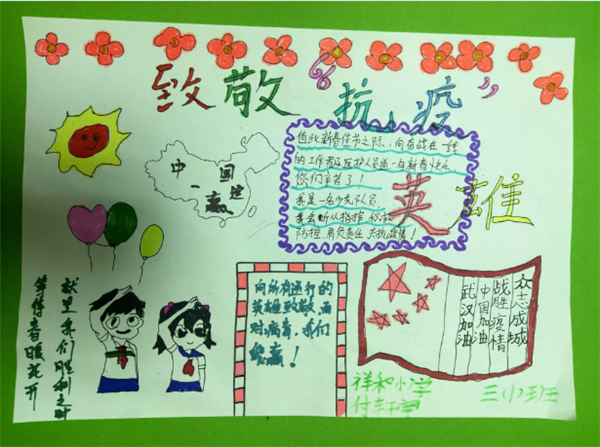 致敬“抗疫”
英雄
值此新春佳节之际，向奋战在一线
的工作者及医护人员道一句新春快乐
你们辛苦了！
我是一名少先队员，
我会听从指挥，
防控，肩负责任，共抗疫情！
中国
一定
赢
向所有逆行的
英雄致敬，面
对病毒，我们
终赢！
众志成城
战胜疫情
中国加油
武汉加油
就是我们胜利之时
等待春暖花开
祥和小学
三(1)班